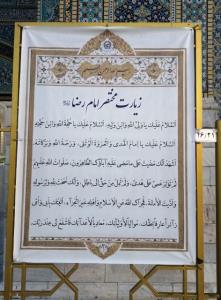 زیارت مختصر امام رضا
اَلسَّلامُ عَلَیْكَ یا وَلِیَّ اللهِ وَابْنَ وَلِیِّهِ، اَلسَّلامُ عَلَیْكَ یا حُجَّةَ اللهِ وَابْنَ حُجَّتِهِ
اَلسَّلامُ عَلَیْكَ یا اِمامَ الْهُدى وَالْعُرْوَةَ الْوُثْقى، وَرَحْمَةُ اللهِ وَبَرَكاتُهُ،
اَشْهَدُ اَنَّكَ مَضَیْتَ عَلى ما مَضى عَلَیْهِ آباؤُكَ الطّاهِرُونَ، صَلَواتُ اللهِ عَلَیْهِمْ
لَمْ تُؤْثِرْ عَمىً عَلى هُدىً، وَلَمْ تَمِلْ مِنْ حَقٍّ اِلى باطِلٍ، وَاَنَّكَ نَصَحْتَ لِلّهِ وَلِرَسُولِهِ
وَاَدَّیْتَ الْاَمانَةَ، فَجَزاكَ اللهُ عَنِ الْاِسْلامِ وَاَهْلِهِ خَیْرَ الْجَزاءِ، اَتَیْتُكَ بِاَبی وَاُمّی
زائِراً عارِفاً بِحَقِّكَ، مُوالِیاً لِاَوْلِیائِكَ، مُعادِیاً لِاَعْدائِكَ، فَاشْفَعْ لی عِنْدَ رَبِّكَ.